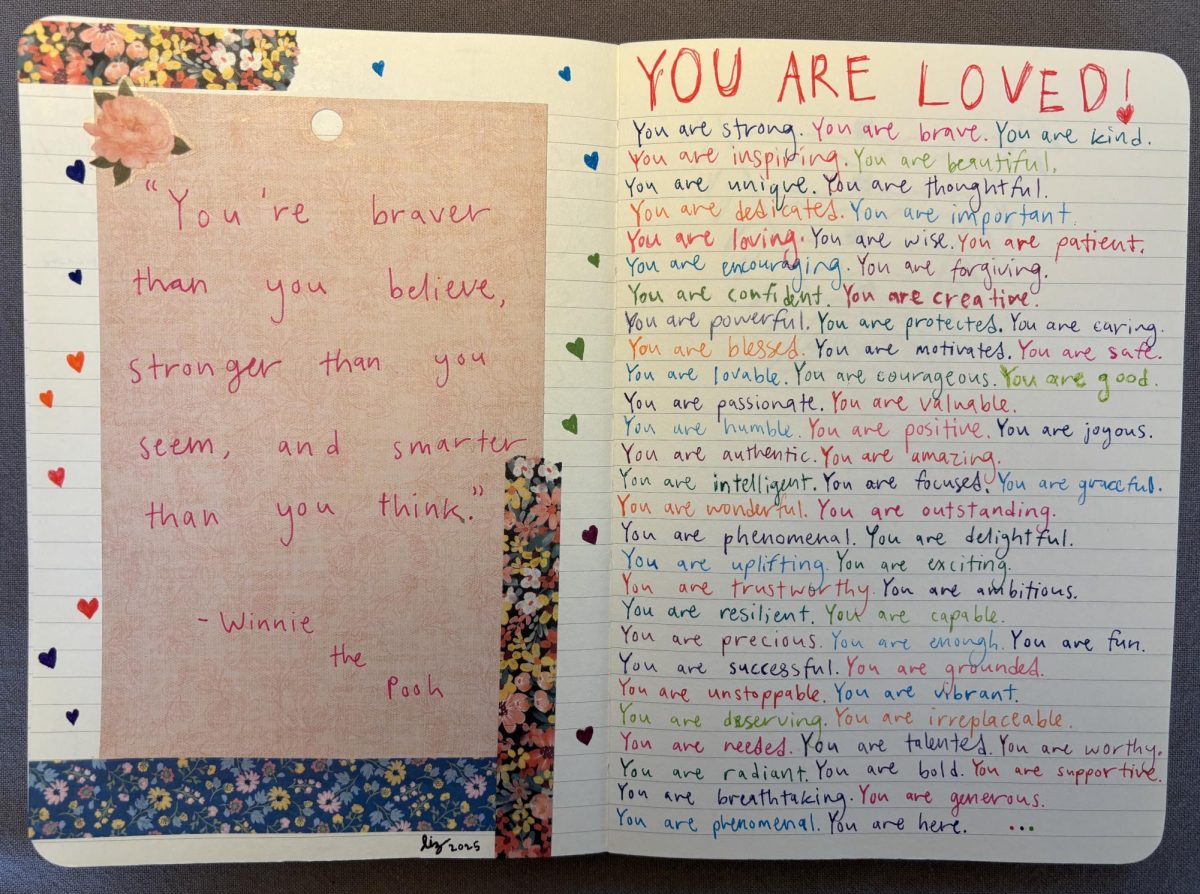 "You're braver
than you believe,
stronger than you
seem, and smarter
than you think."
- Winnie
the
Pooh
liz 2025
YOU ARE LOVED!
You are strong. You are brave. You are kind.
You are inspiring. You are beautiful.
You are unique. You are thoughtful.
You are dedicated. You are important.
You are loving. You are wise. You are patient.
You are encouraging. You are forgiving.
You are confident. You are creative.
You are powerful. You are protected. You are caring.
You are blessed. You are motivated. You are safe.
You are lovable. You are courageous. You are good.
You are passionate. You are valuable.
You are humble. You are positive. You are joyous.
You are authentic. You are amazing.
You are intelligent. You are focused. You are graceful.
You are wonderful. You are outstanding.
You are phenomenal. You are delightful.
You are uplifting. You are exciting.
You are trustworthy. You are ambitious.
You are resilient. You are capable.
You are precious. You are enough. You are fun.
You are successful. You are grounded.
You are unstoppable. You are vibrant.
You are deserving. You are irreplaceable.
You are needed. You are talented. You are worthy.
You are radiant. You are bold. You are supportive.
You are breathtaking. You are generous.
You are phenomenal. You are here. ...